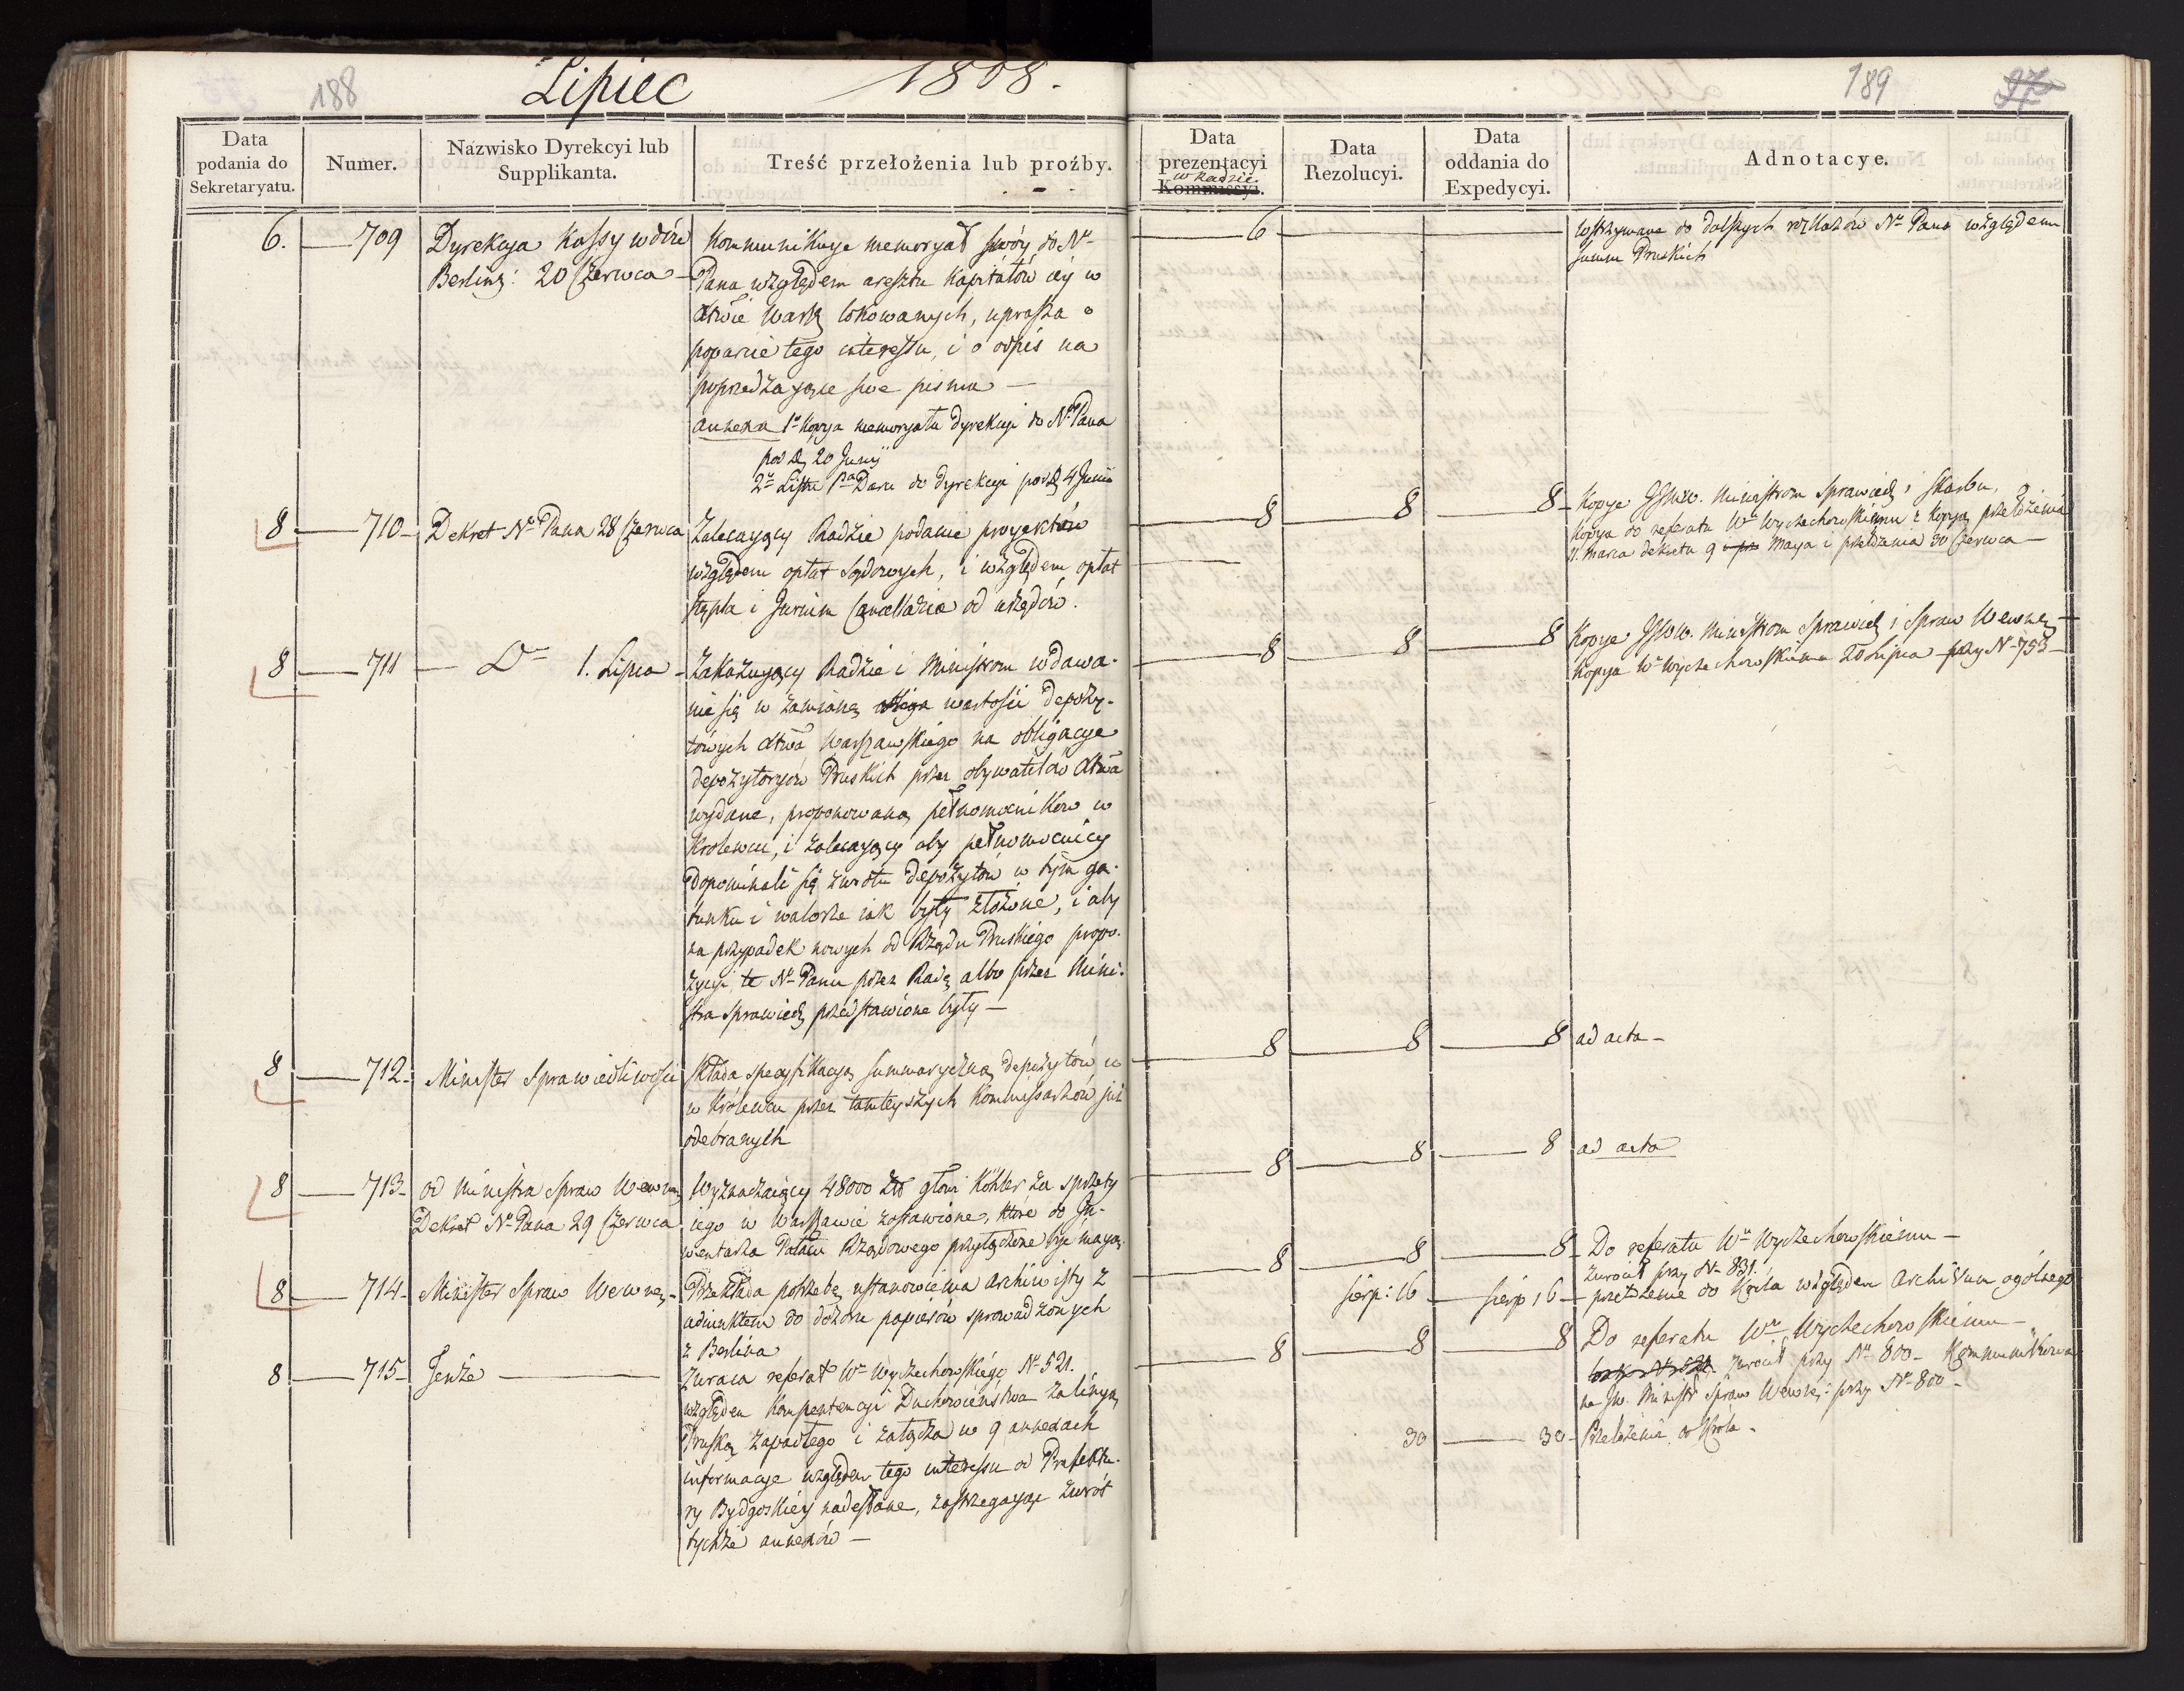 188
Lipiec 1808.
189
Data podania do Sekretaryatu.
Numer.
Nazwisko Dyrekcyi lub Supplikanta.
Treść przełożenia lub prożby.
Data prezentacyi w Radzie Kommissyi.
Data Rezolucyi.
Data oddania do Expedycyi.
Adnotacye.
6. 709 Dyrekcya Kassy wdów
Berlin: 20 Czerwca
Kommunikuje memoryał swóy do Nº
Pana względem aresztu Kapitałów iéy w
Xtwie Warsz lokowanych, uprasza o
poparcie tego interessu, i o odpis na
poprzedzające swe pisma —
annexa 1º Kopya memoryału Dyrekcyi do Nº Pana
pod d 20 Junij
2º Listu Pa Daru do Dyrekcyi pod d 4 Junii
6
wstrzymane do dalszych rozkazów Nº Pana względem
summ Pruskich
8 710 Dekret Nº Pana 28 Czerwca
Zalecaiący Radzie podanie proyektów
względem opłat Sądowych, i względem opłat
stępla i Jurium Cancellariae od urzędów.
8 8 8
Kopye JJWW. Ministrom Sprawied i Skarbu,
Kopya do referatu Wº Wyczechowskiemu z Kopyą przełożenia
11. Marca dekretu 9 Maya i przełożenia 30 Czerwca —
8 711 Dº 1. Lipca
Zakazuyący Radzie i Ministrom wdawa-
nie się w zamianę wartości depozy-
towych Xtwa Warszawskiego na obligacye
depozytoryów Pruskich przez obywatelów Xtwa
wydane, proponowaną pełnomocników w
Krolewcu, i zalecaiący aby pełnomocnicy
dopominali się zwrotu depozytów w tym ga-
tunku i walorze iak były złożone, i aby
na przypadek nowych od Rządu Pruskiego propo-
zycyi, te Nº Panu przez Radę albo przez Mini-
stra Sprawied przedstawione były —
8 8 8
Kopye JJWW. Ministrom Sprawied i Spraw Wewnę
Kopya Wº Wyczechowskiemu 20 Lipca przy Nº 753
8 712 Minister Sprawiedliwości
Składa specyfikacyą summaryczną depozytów w
w Królewcu przez tamteyszych Kommissarzów już
odebranych
8 8 8 ad acta —
8 713 od Ministra Spraw Wewnę
Dekret Nº Pana 29 Czerwca
Wyznaczaiący 48000 Köhler za sprzęty
iego w Warszawie zostawione, które do In-
wentarza Pałacu Rządowego przyłączone być maią.
8 8 8 ad acta
8 714 Minister Spraw Wewnę
Przekłada potrzebę ustanowienia archiwisty z
adiunktem do dozoru papierów sprowadzonych
z Berlina
8 8 8 Do referatu Wº Wyczechowskiemu —
zwrócił przy Nº 831.
sierp: 16 sierp 16 przełożenie do Króla względem Archivum ogólnego
8 715 Tenże
Zwraca referat Wº Wyczechowskiego Nº 521.
względem Kompetencyi Duchowieństwa za linyą
Pruską zapadłego i załącza w 9 annexach
informacye względem tego interessu od Prefektu-
ry Bydgoskiéy nadesłane, zastrzegaiąc zwrót
tychże annexów —
8 8 8 Do referatu Wº Wyczechowskiemu —
zwrócił przy Nº 800 — Kommunikowa
na JW. Ministr Spraw Wewnę: przy Nº 800 —
30 30 Przełożenia do Króla.